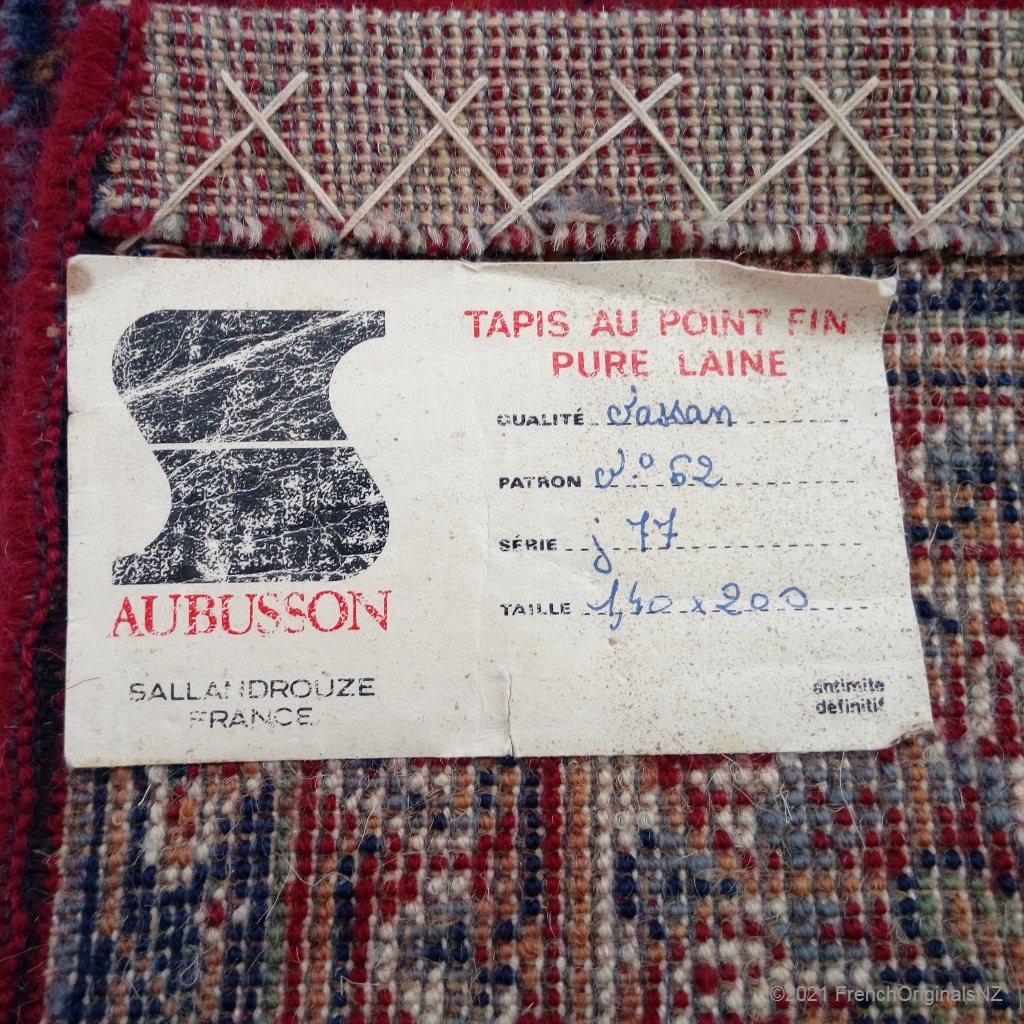 TAPIS AU POINT FIN
PURE LAINE
QUALITÉ
PATRON 62
SÉRIE j 77
TAILLE 1,40 x 200
AUBUSSON
SALLANDROUZE
FRANCE
antimite
définitif
©2021 FrenchOriginalsNZ